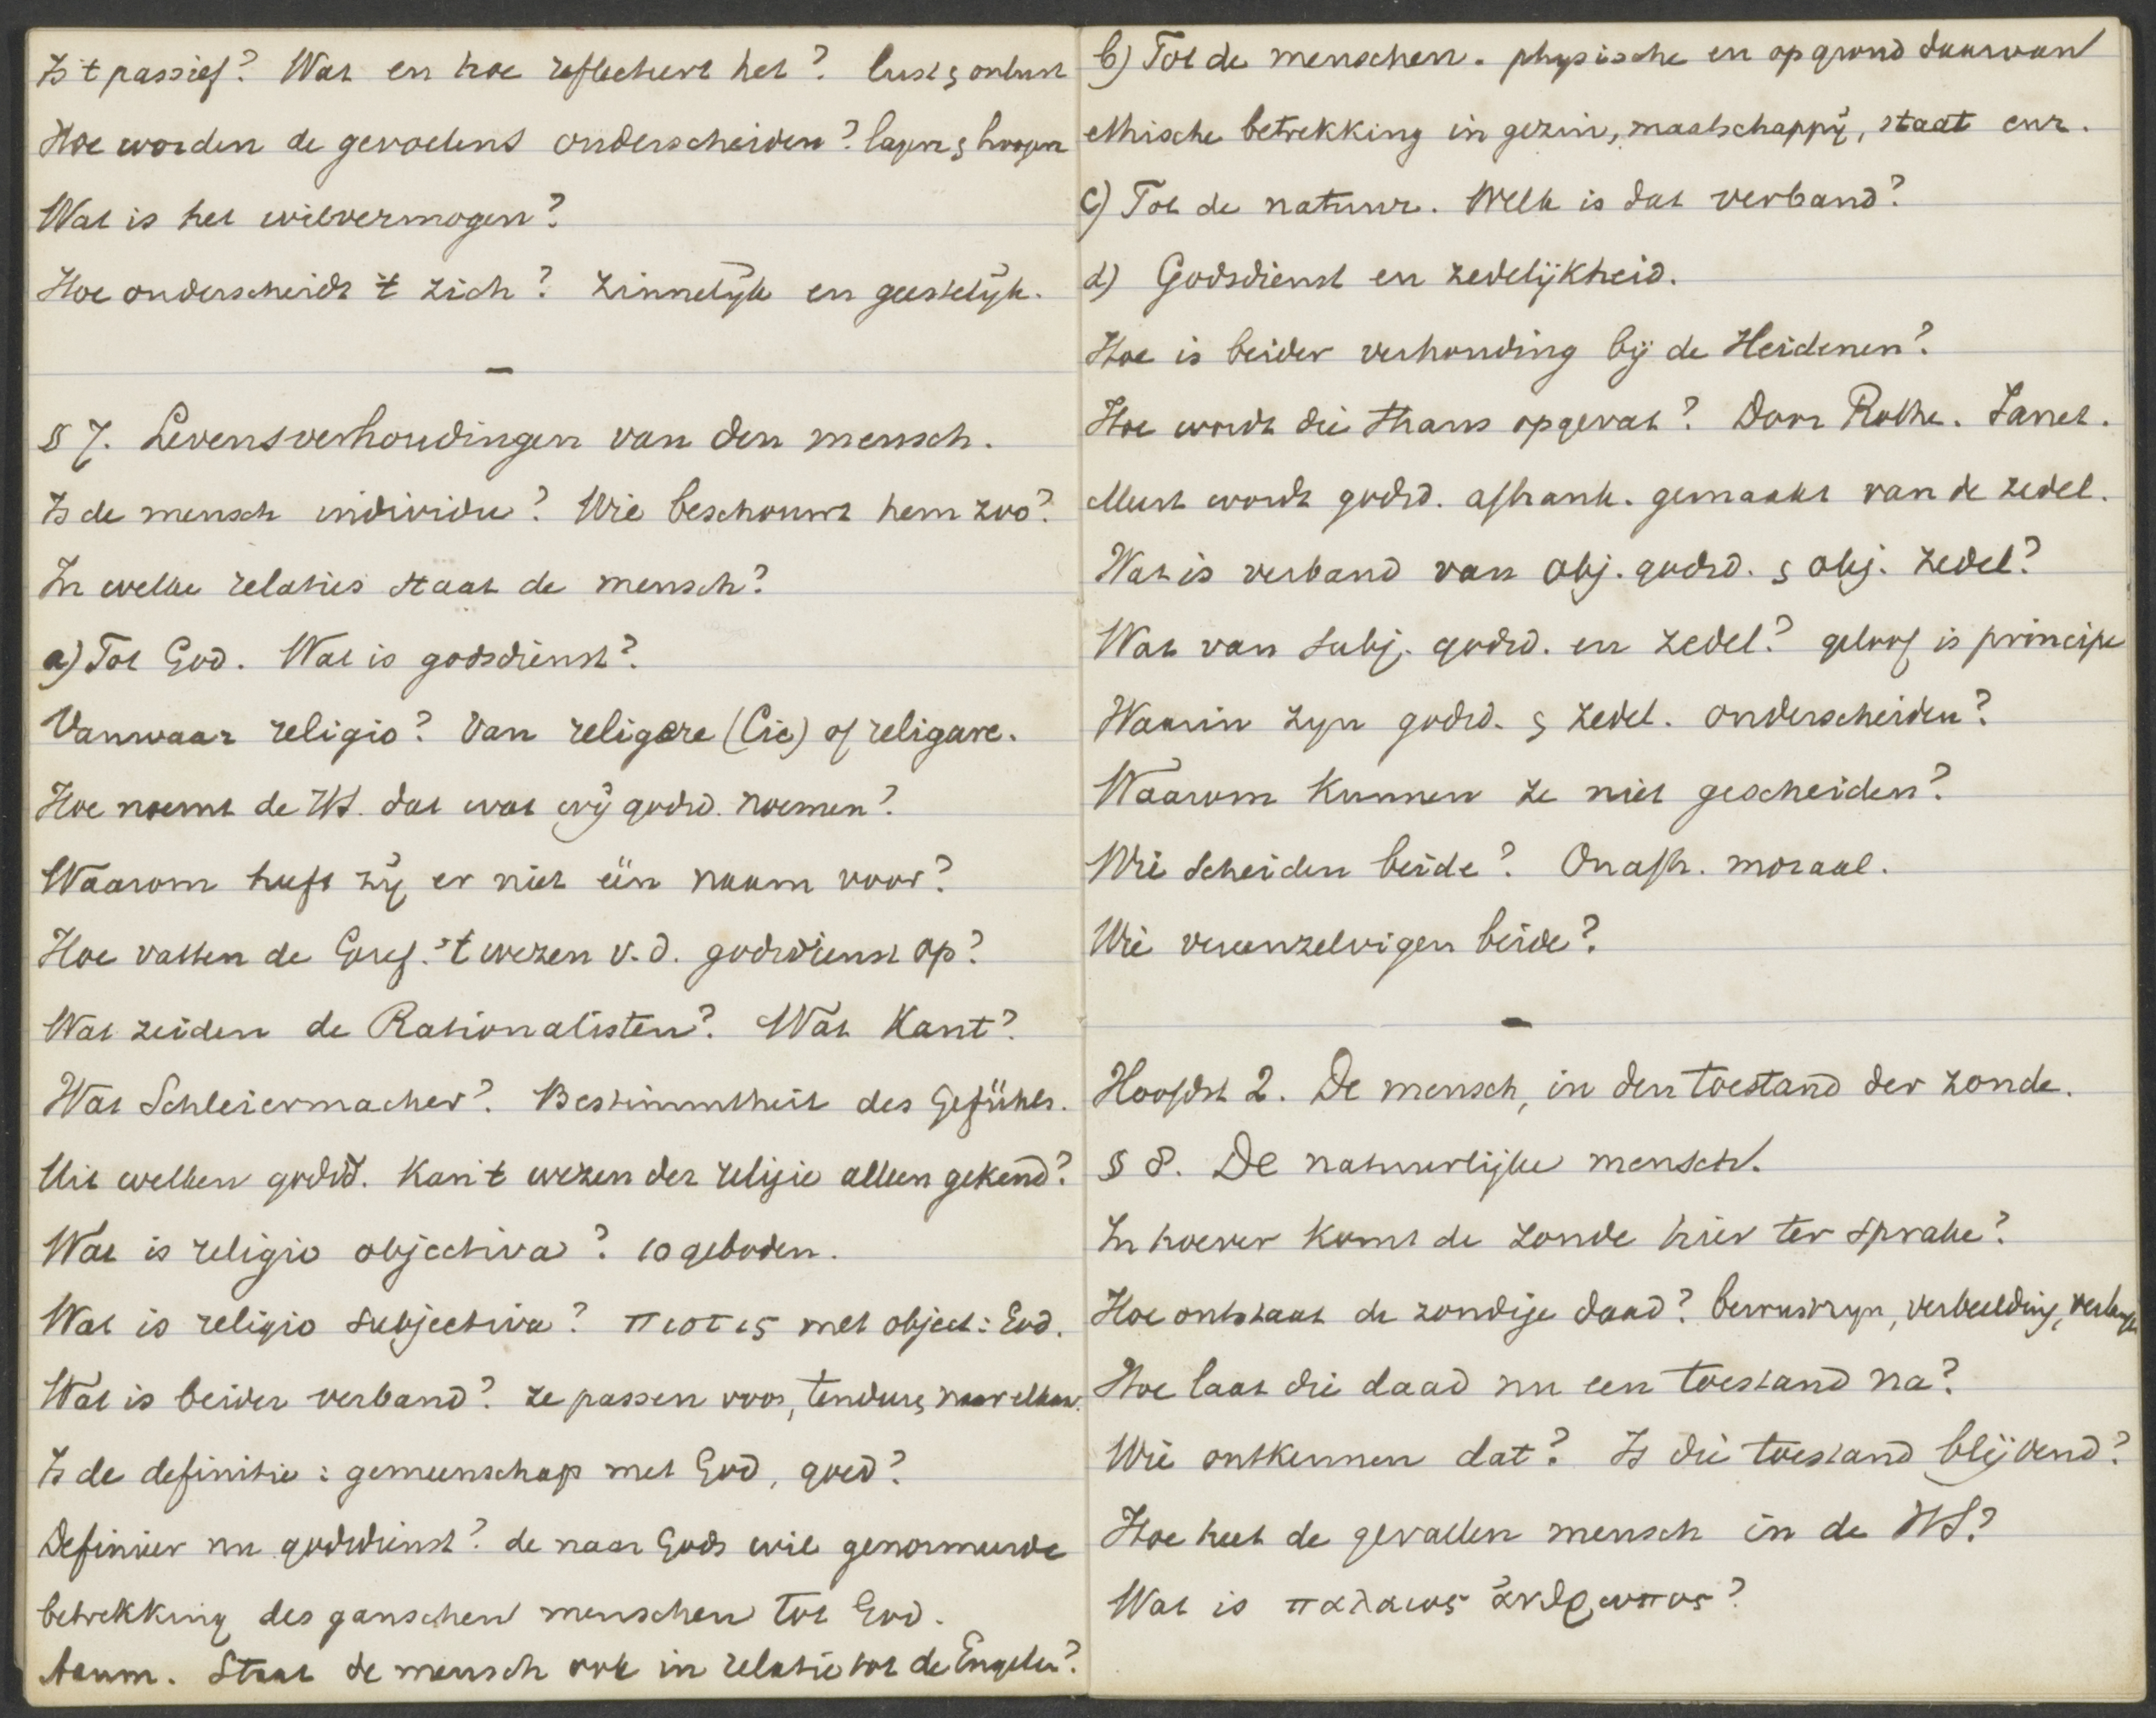 Is 't passief? Wat en hoe reflecteert het? lust & onlust
Hoe worden de gevoelens onderscheiden? lagere & hoogere
Wat is het wilvermogen?
Hoe onderscheidt 't zich? Zinnelijk en geestelijk.
—
§ 7. Levensverhoudingen van den mensch.
Is de mensch individu? Wie beschouwt hem zoo?
In welke relaties staat de mensch?
a) Tot God. Wat is godsdienst?
Vanwaar religio? Van religere (Cic) of religare.
Hoe noemt de HS. dat wat wij godsd. noemen?
Waarom heeft zij er niet één naam voor?
Hoe vatten de Geref. 't wezen v.d. godsdienst op?
Wat zeiden de Rationalisten? Wat Kant?
Wat Schleiermacher? Bestimmtheit des Gefühls.
Uit welken godsd. kan 't wezen der religie alleen gekend?
Wat is religio objectiva? 10 geboden.
Wat is religio subjectiva? πιστις met object: God.
Wat is beider verband? ze passen voor, tendeeren naar elkaar.
Is de definitie: gemeenschap met God, goed?
Definieer nu godsdienst? de naar Gods wil genormeerde
betrekking des ganschen menschen tot God.
Aanm. Staat de mensch ook in relatie tot de Engelen?
b) Tot de menschen. physische en op grond daarvan
ethische betrekking in gezin, maatschappij, staat enz.
c) Tot de natuur. Welk is dat verband?
d) Godsdienst en zedelijkheid.
Hoe is beider verhouding bij de Heidenen?
Hoe wordt die thans opgevat? Door Rothe. Janet.
Meest wordt godsd. afhank. gemaakt van de zedel.
Wat is verband van obj. godsd. & obj. zedel?
Wat van subj. godsd. en zedel? geloof is principe
Waarin zijn godsd. & zedel. onderscheiden?
Waarom kunnen ze niet gescheiden?
Wie scheiden beide? Onafh. moraal.
Wie vereenzelvigen beide?
—
Hoofdst 2. De mensch, in den toestand der zonde.
§ 8. De natuurlijke mensch.
In hoever komt de zonde hier ter sprake?
Hoe ontstaat de zondige daad? bewustzijn, verbeelding,
Hoe laat die daad nu een toestand na?
Wie ontkennen dat? Is die toestand blijvend?
Hoe heet de gevallen mensch in de HS?
Wat is παλαιος ἀνθρωπος?